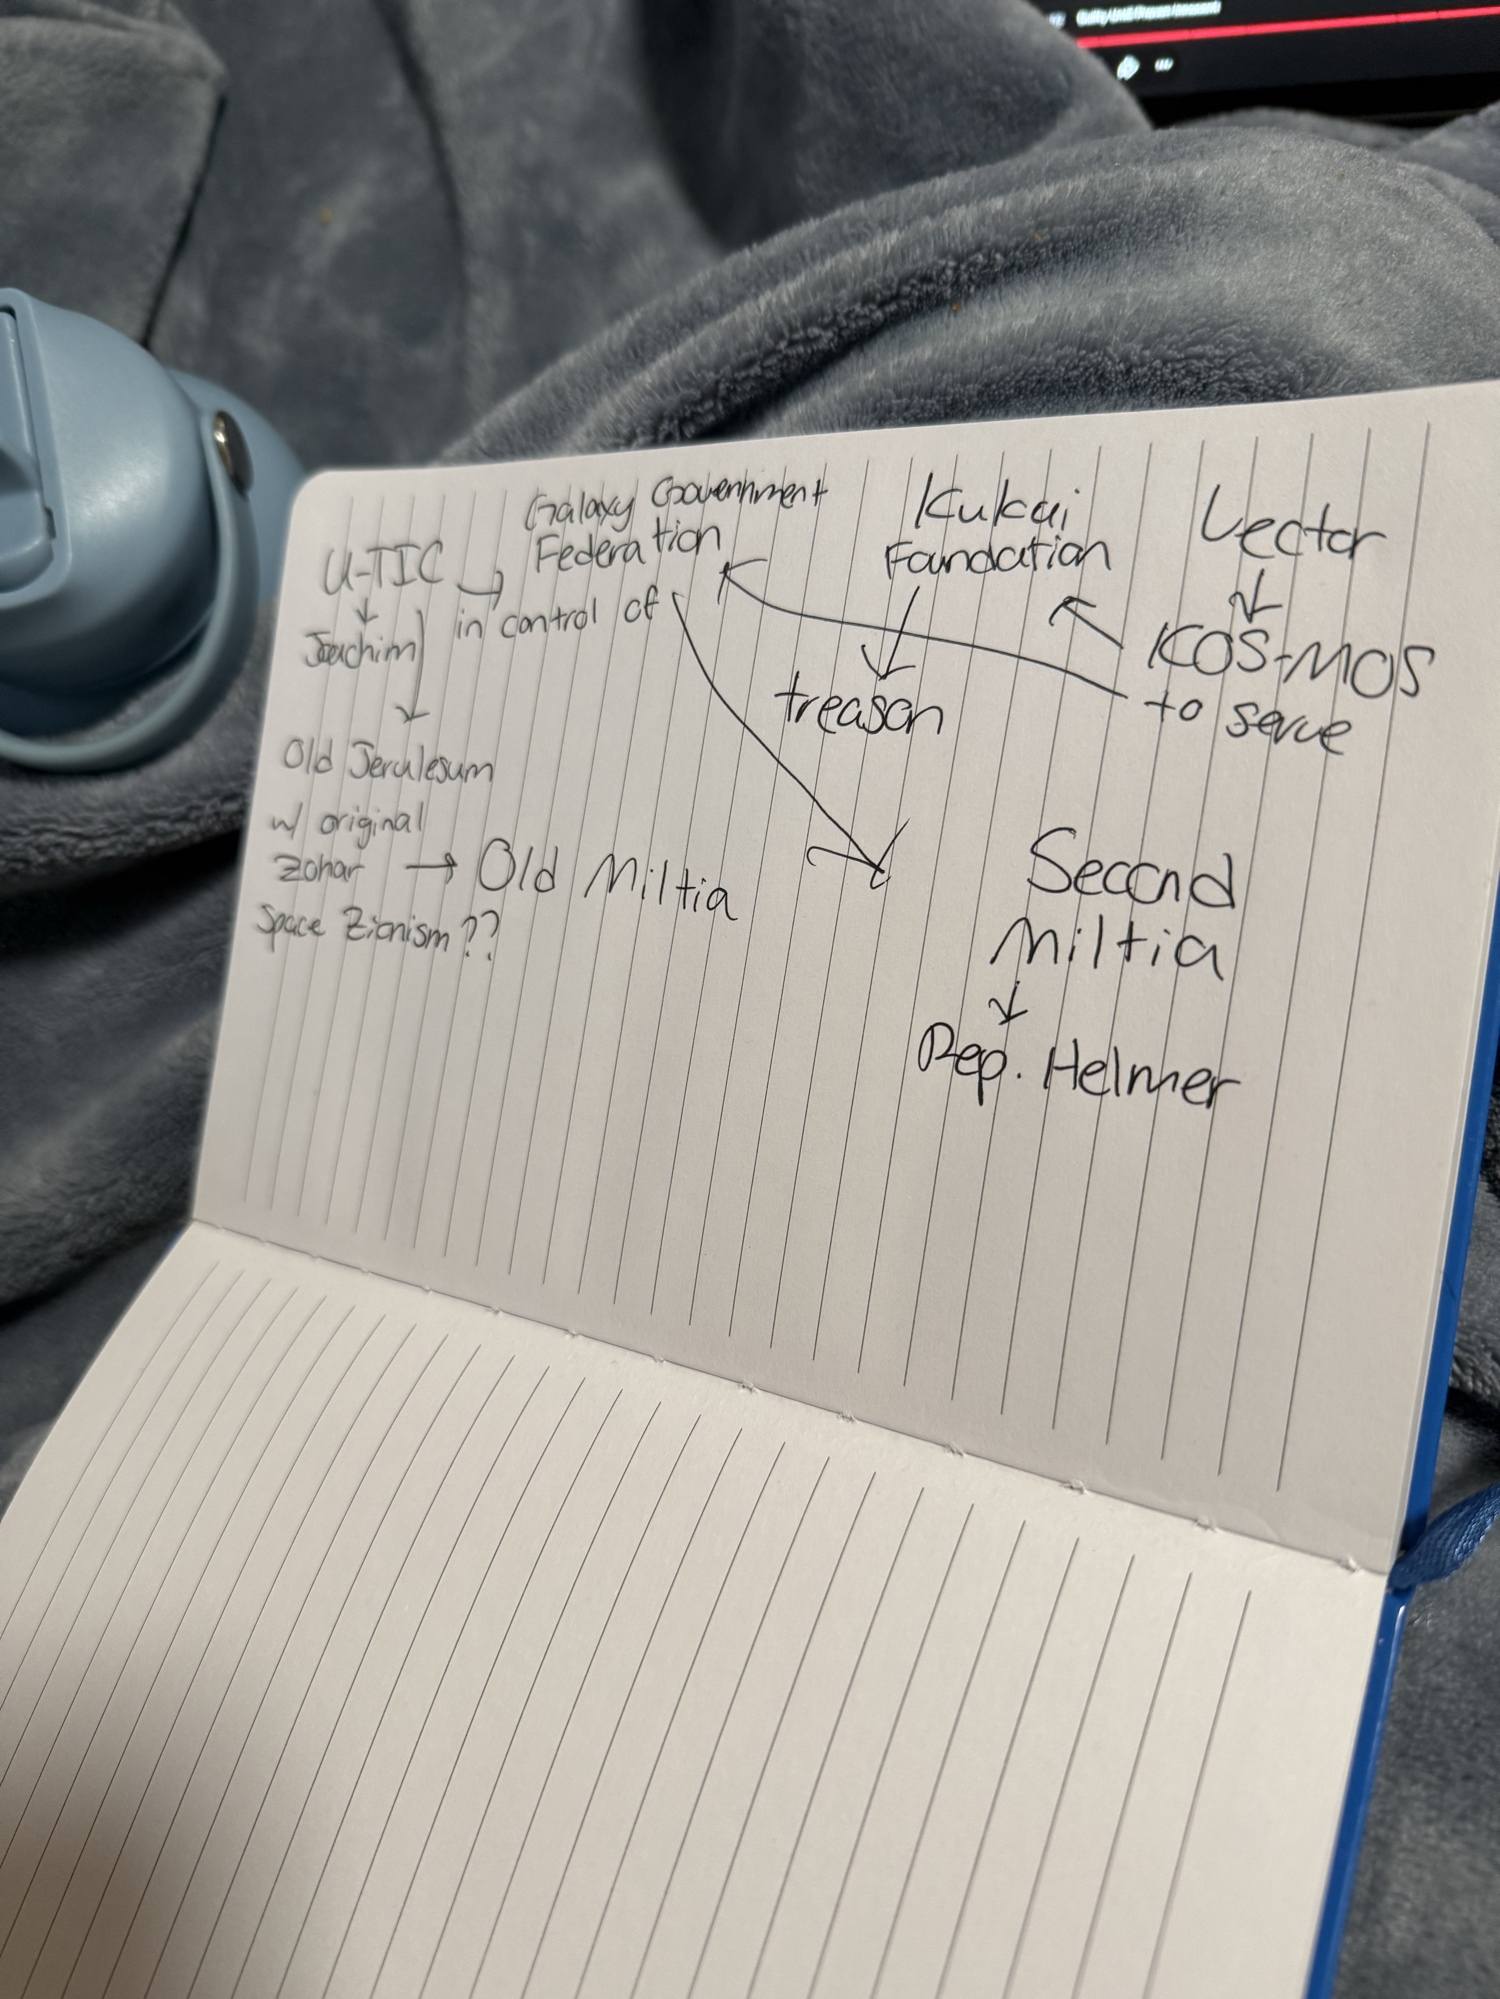 Guilty Until Proven Innocent
U-TIC
Joachim
Galaxy Government
Federation
in control of
Kukai
Foundation
treason
Vector
KOS-MOS
to serve
Old Jerulesum
w/ original
Zohar → Old Miltia
Space Zionism??
Second
Miltia
Rep. Helmer